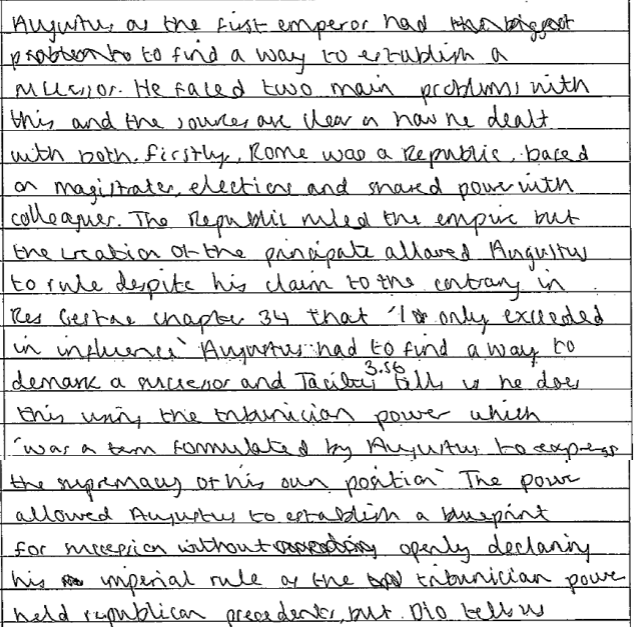 Augustus as the first emperor had the biggest
problem to to find a way to establish a
successor. He faced two main problems with
this and the sources are clear on how he dealt
with both. Firstly, Rome was a Republic, based
on magistrates, elections and shared power with
colleagues. The Republic ruled the empire but
the creation of the principate allowed Augustus
to rule despite his claim to the contrary in
Res Gestae chapter 34 that 'I only exceeded
in influence' Augustus had to find a way to
demark a successor and Tacitus 3.56 tells us he does
this using the tribunician power which
'was a term formulated by Augustus to express
the supremacy of his own position' The power
allowed Augustus to establish a blueprint
for succession without openly declaring
his imperial rule as the tribunician power
held republican precedents, but Dio tells us